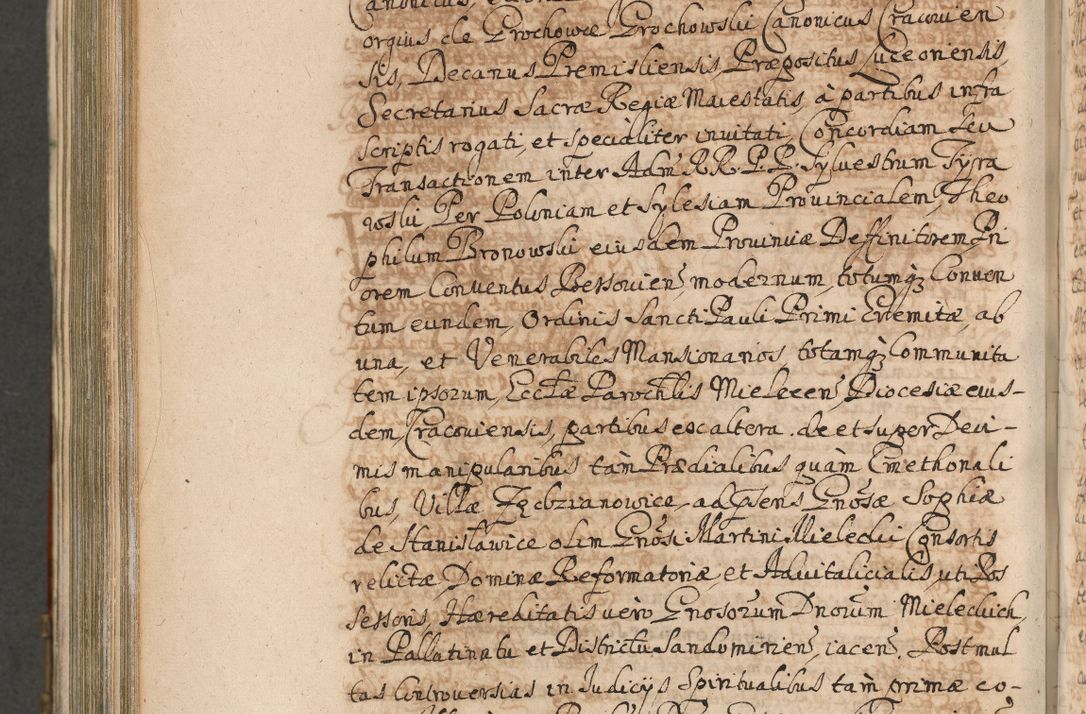 orgius de Grochowce Grochowski Canonicus Cracovien
sis, Decanus Premisliensis, Præpositus Luceoriensis,
Secretarius Sacræ Regiæ Maiestatis, à partibus infra
scriptis rogati, et specialiter invitati, Concordiam seu
Transactionem inter Adm̃ R.R. P.P. Sylvestrum Tyra
wski, Per Poloniam et Sylesiam Provincialem, Theo
philum Bronowski eiusdem Provinciæ Deffinitorem Pri
orem Conventus Bessovien̄, modernum, totumq3 Conven
tum eundem, Ordinis Sancti Pauli Primi Eremitæ, ab
una, et Venerabiles Mansionarios totamq3 Communita
tem ipsorum, Ecclæ Parochlis Mielecen̄, Diocesiæ eius-
dem, Cracoviensis, partibus ex altera. de et super Deci-
mis manipularibus tàm Prædialibus quàm Cmethonali
bus, Villæ Zębrzanowice, ad p̄sens Gnosæ Sophiæ
de Stanisławice olim Gnosi Martini Mielecki Consortis
relictæ, Dominæ Reformatoriæ, et Advitalicialis, uti Pos
sessoris, Hæreditatis verò Gnosorum Dnorum Mieleckich,
in Pallatinatu et Districtu Sandomirien̄, iacen̄, Post mul
tas Controversias in Judicijs Spiritualibus tàm primæ co-